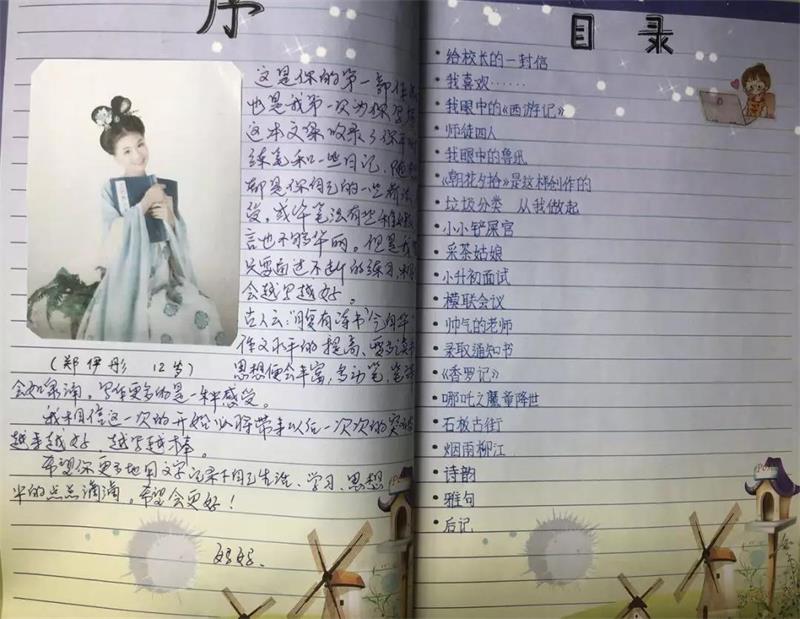 序
这是你的第一部作
也是我第一次为你写
这本文集收录了你平时
练笔和一些日记，随
都是你自己的一些看法
受，或许笔法有些稚嫩
言也不够华丽。但是我
只要通过不断的练习，
会越写越好。
古人云："腹有诗书气自华"
作文水平的提高，要多读书
思想便会丰富，多动笔，笔
(郑伊彤 12岁)
会如泉涌，写作更多的是一种感受。
我相信这一次的开始必将带来以后一次次的
越来越好 越写越棒。
希望你更多地用文字记录下自己生活、学习、思想
中的点点滴滴，希望会更好！
妈妈.
目录
·给校长的一封信
·我喜欢……
·我眼中的《西游记》
·师徒四人
·我眼中的鲁迅
·《朝花夕拾》是这样创作的
·垃圾分类 从我做起
·小小铲屎官
·采茶姑娘
·小升初面试
·模联会议
·帅气的老师
·录取通知书
·《香罗记》
·哪吒之魔童降世
·石板古街
·烟雨柳江
·诗韵
·雅句
·后记